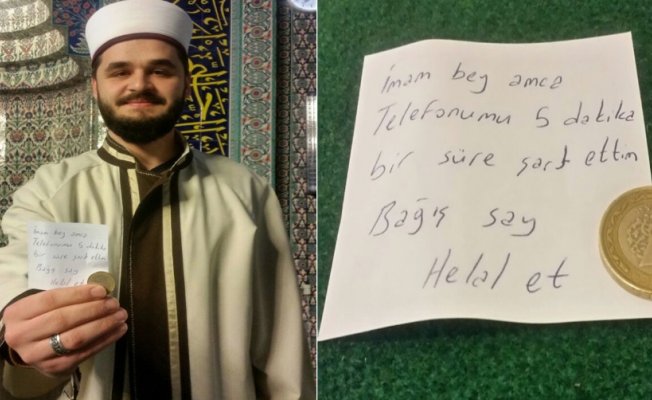 İmam bey amca
Telefonumu 5 dakika
bir süre şart ettim
Bağış say
Helal et
İmam bey amca
Telefonumu 5 dakika
bir süre şart ettim
Bağış say
Helal et